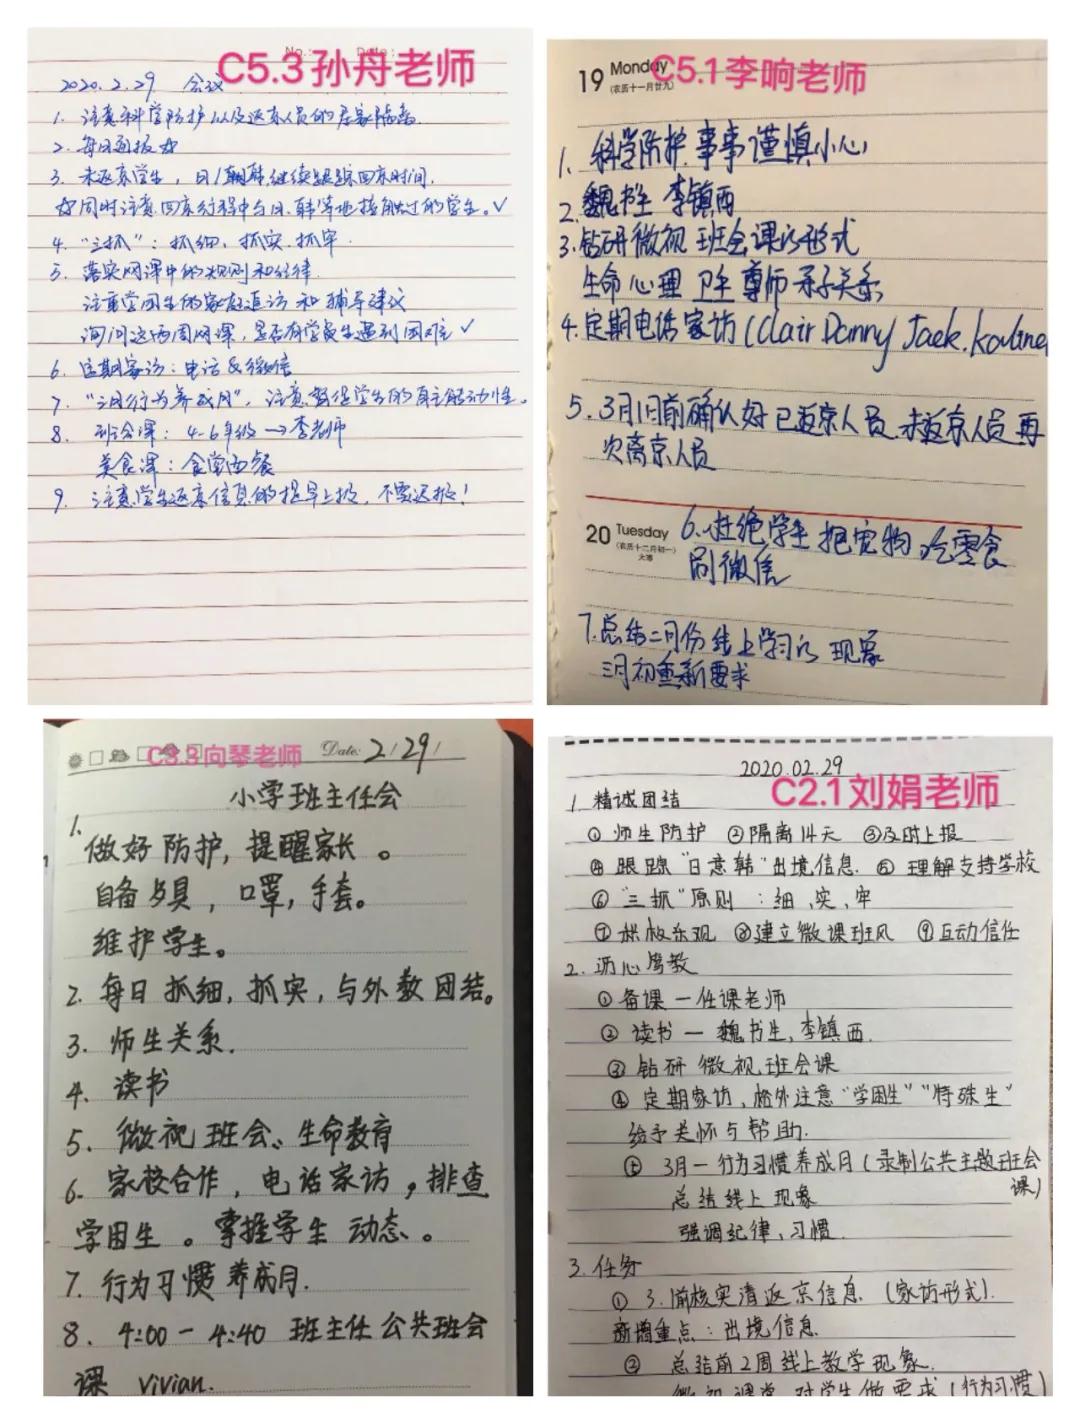 No.: Date:
C5.3孙舟老师
2020.2.29 会议
1. 注意科学防护以及返京人员的居家隔离.
2. 每日通报
3. 未返京学生，日/韩继续跟踪回京时间.
同时注意回京行程中与日.韩等地接触过的学生。✓
4. “三抓”：抓细、抓实.抓牢.
5. 落实网课中的规则和纪律.
注重学困生的家庭追访和辅导建议
询问这两周网课，是否有学生遇到困难 ✓
6. 定期家访：电话&微信
7. “三月行为养成月”，注意督促学生的自主能动性。
8. 班会课：4-6年级→李老师
美食课：食堂西餐
9. 注意学生返京信息的提早上报，不要迟报！
C5.1李晌老师
19 Monday
(农历十一月廿九)
1. 科学防护.事事谨慎小心
2. 魏书生 李镇西
3. 钻研微视 班会课的形式
生命 心理 卫生 尊师 亲子关系
4. 定期电话家访 (Clair Danny Jack.
5. 3月1日前确认好已返京人员 未返京人员 再
次离京人员
20 Tuesday
(农历十二月初一)
大寒
6. 杜绝学生 把宠物 吃零食
刷微信
7. 总结二月份线上学习的 现象
三月初重新要求
C3.3向琴老师
Date: 2/29/
小学班主任会
1.
做好防护，提醒家长。
自备餐具，口罩，手套。
维护学生。
2. 每日抓细，抓实，与外教团结。
3. 师生关系.
4. 读书
5. 微视班会、生命教育
6. 家校合作，电话家访，排查
学困生。掌握学生 动态。
7. 行为习惯养成月.
8. 4:00-4:40 班主任公共班会
课 vivian.
2020.02.29
C2.1刘娟老师
1. 精诚团结
① 师生防护 ②隔离14天 ③及时上报
④ 跟踪“日意韩”出境信息. ⑤ 理解支持学校
⑥ “三抓”原则：细、实、牢
⑦ 积极乐观 ⑧建立微课班风 ⑨互动信任
2. 沥心写教
① 备课 一 任课老师
② 读书 一 魏书生，李镇西.
③ 钻研 微视，班会课
④ 定期家访，格外注意“学困生”“特殊生”
给予关怀与帮助.
⑤ 3月一行为习惯养成月(录制公共主题班会
课)
总结线上现象
强调纪律，习惯.
3. 任务
① 3.1前核实清返京信息.(家访形式).
新增重点：出境信息.
② 总结前2周线上教学现象.
对学生做要求(行为习惯)